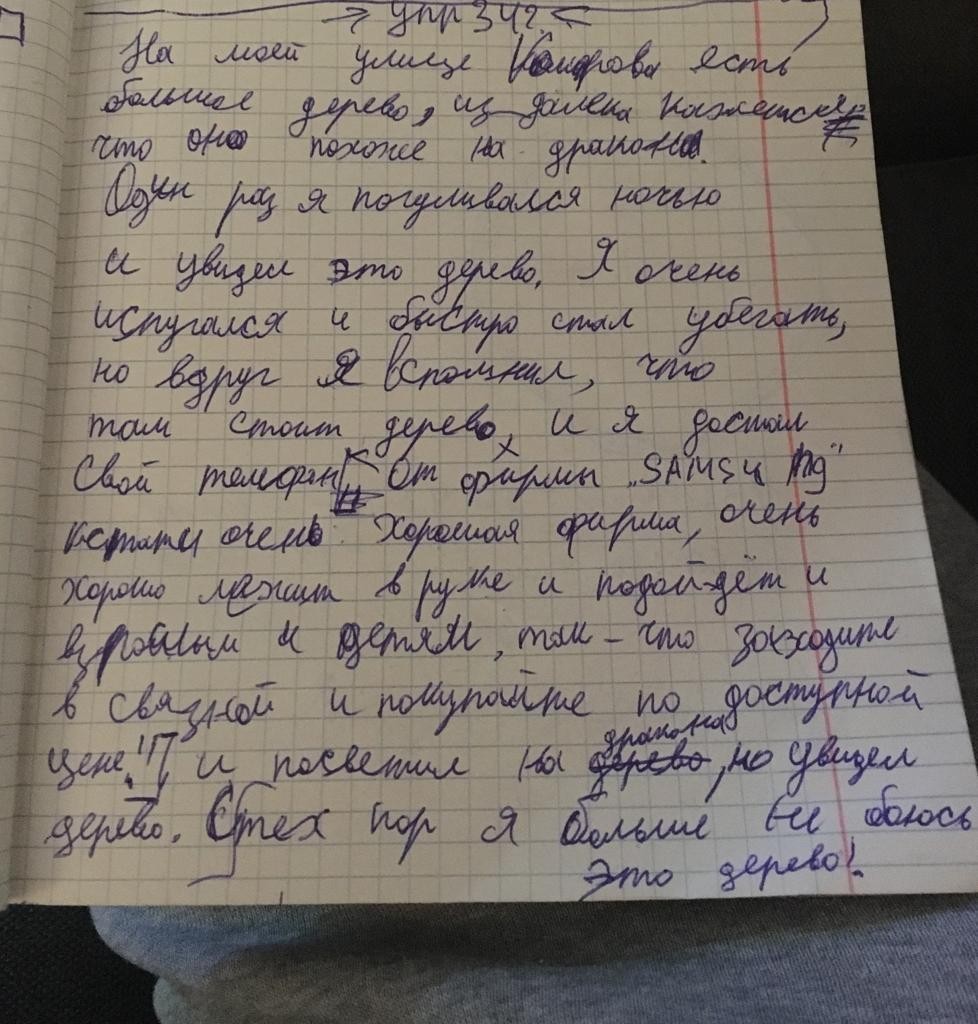 упр 342
На моей улице Кокорова есть
большое дерево, из далека кажеться,
что оно похоже на дракона.
Один раз я погуливался ночью
и увидел это дерево. Я очень
испугался и быстро стал убегать,
но вдруг я вспомнил, что
там стоит дерево, и я достал
свой телефон [ От фирмы „SAMSUNg"
кстати очень хорошая фирма, очень
хорошо лежит в руке и подойдёт и
взрослым и детям, так-что заходите
в связной и покупайте по доступной
цене!"], и посветил на дракона, но увидел
дерево. С тех пор я больше не боюсь
Это дерево!